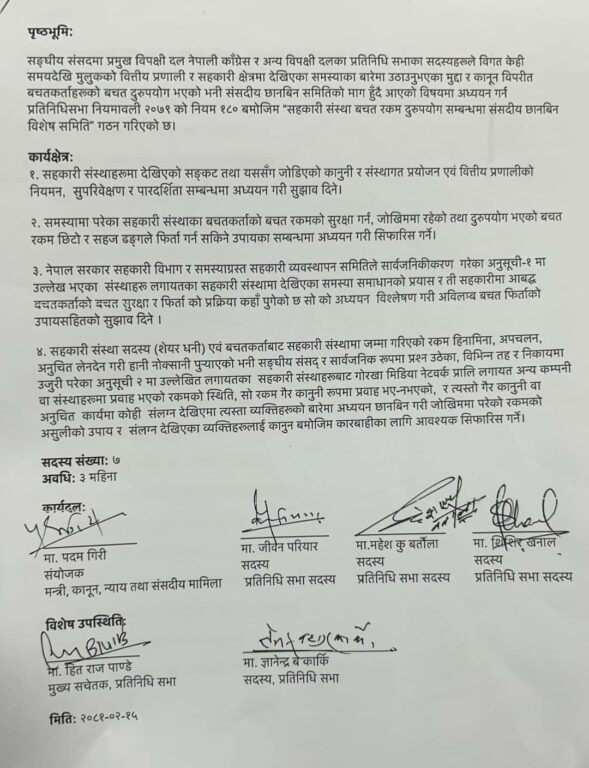 पृष्ठभूमि:
सङ्घीय संसदमा प्रमुख विपक्षी दल नेपाली काँग्रेस र अन्य विपक्षी दलका प्रतिनिधि सभाका सदस्यहरूले विगत केही
समयदेखि मुलुकको वित्तीय प्रणाली र सहकारी क्षेत्रमा देखिएका समस्याका बारेमा उठाउनुभएका मुद्दा र कानून विपरीत
बचतकर्ताहरूको बचत दुरुपयोग भएको भनी संसदीय छानबिन समितिको माग हुँदै आएको विषयमा अध्ययन गर्न
प्रतिनिधिसभा नियमावली २०७९ को नियम १८० बमोजिम "सहकारी संस्था बचत रकम दुरुपयोग सम्बन्धमा संसदीय छानबिन
विशेष समिति" गठन गरिएको छ।
कार्यक्षेत्र:
१. सहकारी संस्थाहरूमा देखिएको सङ्कट तथा यससँग जोडिएको कानुनी र संस्थागत प्रयोजन एवं वित्तीय प्रणालीको
नियमन, सुपरिवेक्षण र पारदर्शिता सम्बन्धमा अध्ययन गरी सुझाव दिने।
२. समस्यामा परेका सहकारी संस्थाका बचतकर्ताको बचत रकमको सुरक्षा गर्न, जोखिममा रहेको तथा दुरुपयोग भएको बचत
रकम छिटो र सहज ढङ्गले फिर्ता गर्न सकिने उपायका सम्बन्धमा अध्ययन गरी सिफारिस गर्ने।
३. नेपाल सरकार सहकारी विभाग र समस्याग्रस्त सहकारी व्यवस्थापन समितिले सार्वजनिकीकरण गरेका अनुसूची-१ मा
उल्लेख भएका संस्थाहरू लगायतका सहकारी संस्थामा देखिएका समस्या समाधानको प्रयास र ती सहकारीमा आबद्ध
बचतकर्ताको बचत सुरक्षा र फिर्ता को प्रक्रिया कहाँ पुगेको छ सो को अध्ययन विश्लेषण गरी अविलम्ब बचत फिर्ताको
उपायसहितको सुझाव दिने ।
४. सहकारी संस्था सदस्य (शेयर धनी) एवं बचतकर्ताबाट सहकारी संस्थामा जम्मा गरिएको रकम हिनामिना, अपचलन,
अनुचित लेनदेन गरी हानी नोक्सानी पुऱ्याएको भनी सङ्घीय संसद् र सार्वजनिक रूपमा प्रश्न उठेका, विभिन्न तह र निकायमा
उजुरी परेका अनुसूची २ मा उल्लेखित लगायतका सहकारी संस्थाहरूबाट गोरखा मिडिया नेटवर्क प्रालि लगायत अन्य कम्पनी
वा संस्थाहरूमा प्रवाह भएको रकमको स्थिति, सो रकम गैर कानूनी रूपमा प्रवाह भए-नभएको, र त्यस्तो गैर कानूनी वा
अनुचित कार्यमा कोही संलग्न देखिएमा त्यस्ता व्यक्तिहरूको बारेमा अध्ययन छानबिन गरी जोखिममा परेको रकमको
असुलीको उपाय र संलग्न देखिएका व्यक्तिहरूलाई कानुन बमोजिम कारबाहीका लागि आवश्यक सिफारिस गर्ने।
सदस्य संख्या: ७
अवधि: ३ महिना
कार्यदल:
मा. पदम गिरी
संयोजक
मन्त्री, कानून, न्याय तथा संसदीय मामिला
मा. जीवन परियार
सदस्य
प्रतिनिधि सभा सदस्य
मा.महेश कु बर्तौला
सदस्य
प्रतिनिधि सभा सदस्य
मा. शिशिर खनाल
सदस्य
प्रतिनिधि सभा सदस्य
विशेष उपस्थिति:
मा. हित राज पाण्डे
मुख्य सचेतक, प्रतिनिधि सभा
मा. ज्ञानेन्द्र ब कार्कि
सदस्य, प्रतिनिधि सभा
मिति: २०८१-०२-१५